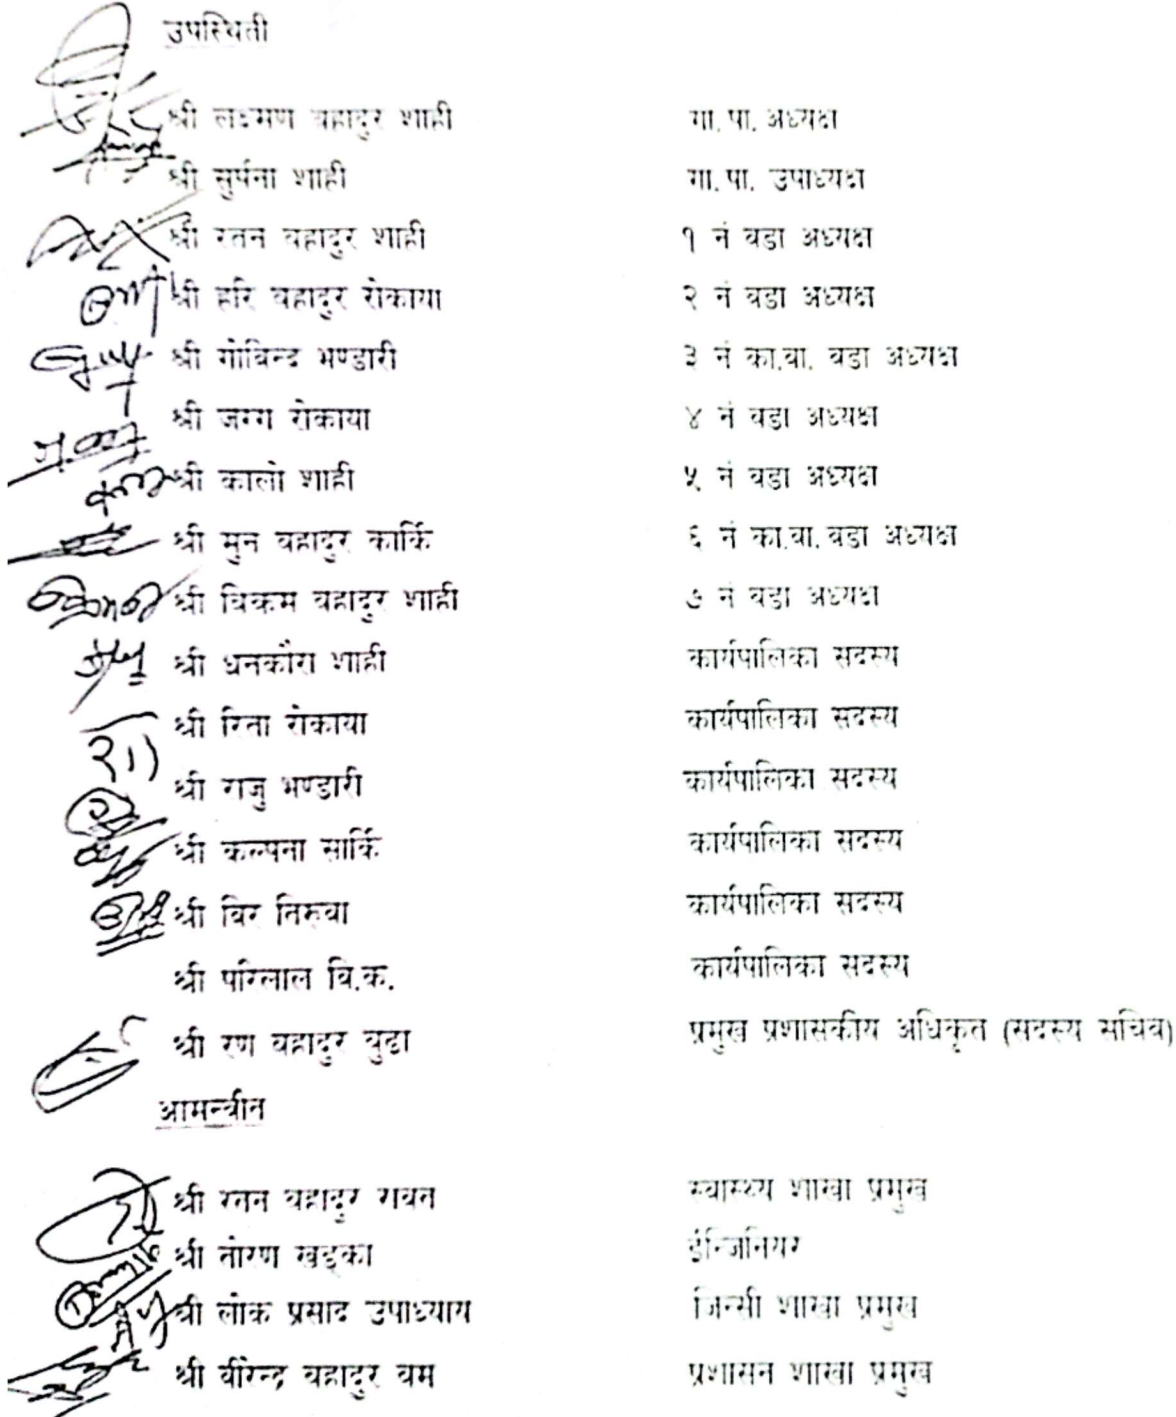 उपस्थिती
श्री लक्ष्मण बहादुर शाही गा.पा. अध्यक्ष
श्री सुर्पना शाही गा.पा. उपाध्यक्ष
श्री रतन बहादुर शाही १ नं वडा अध्यक्ष
श्री हरि बहादुर रोकाया २ नं वडा अध्यक्ष
श्री गोविन्द भण्डारी ३ नं का.वा. वडा अध्यक्ष
श्री जग्ग रोकाया ४ नं वडा अध्यक्ष
श्री कालो शाही ५ नं वडा अध्यक्ष
श्री मुन बहादुर कार्कि ६ नं का.वा. वडा अध्यक्ष
श्री विकम बहादुर शाही ७ नं वडा अध्यक्ष
श्री धनकौरा शाही कार्यपालिका सदस्य
श्री रिता रोकाया कार्यपालिका सदस्य
श्री राजु भण्डारी कार्यपालिका सदस्य
श्री कल्पना सार्कि कार्यपालिका सदस्य
श्री विर तिरुवा कार्यपालिका सदस्य
श्री परिलाल वि.क. कार्यपालिका सदस्य
श्री रण बहादुर बुढा प्रमुख प्रशासकीय अधिकृत (सदस्य सचिव)
आमन्त्रीत
श्री रतन बहादुर रावत स्वास्थ्य शाखा प्रमुख
श्री तोरण खड्का ईन्जिनियर
श्री लोक प्रसाद उपाध्याय जिन्सी शाखा प्रमुख
श्री वीरेन्द्र बहादुर बम प्रशासन शाखा प्रमुख